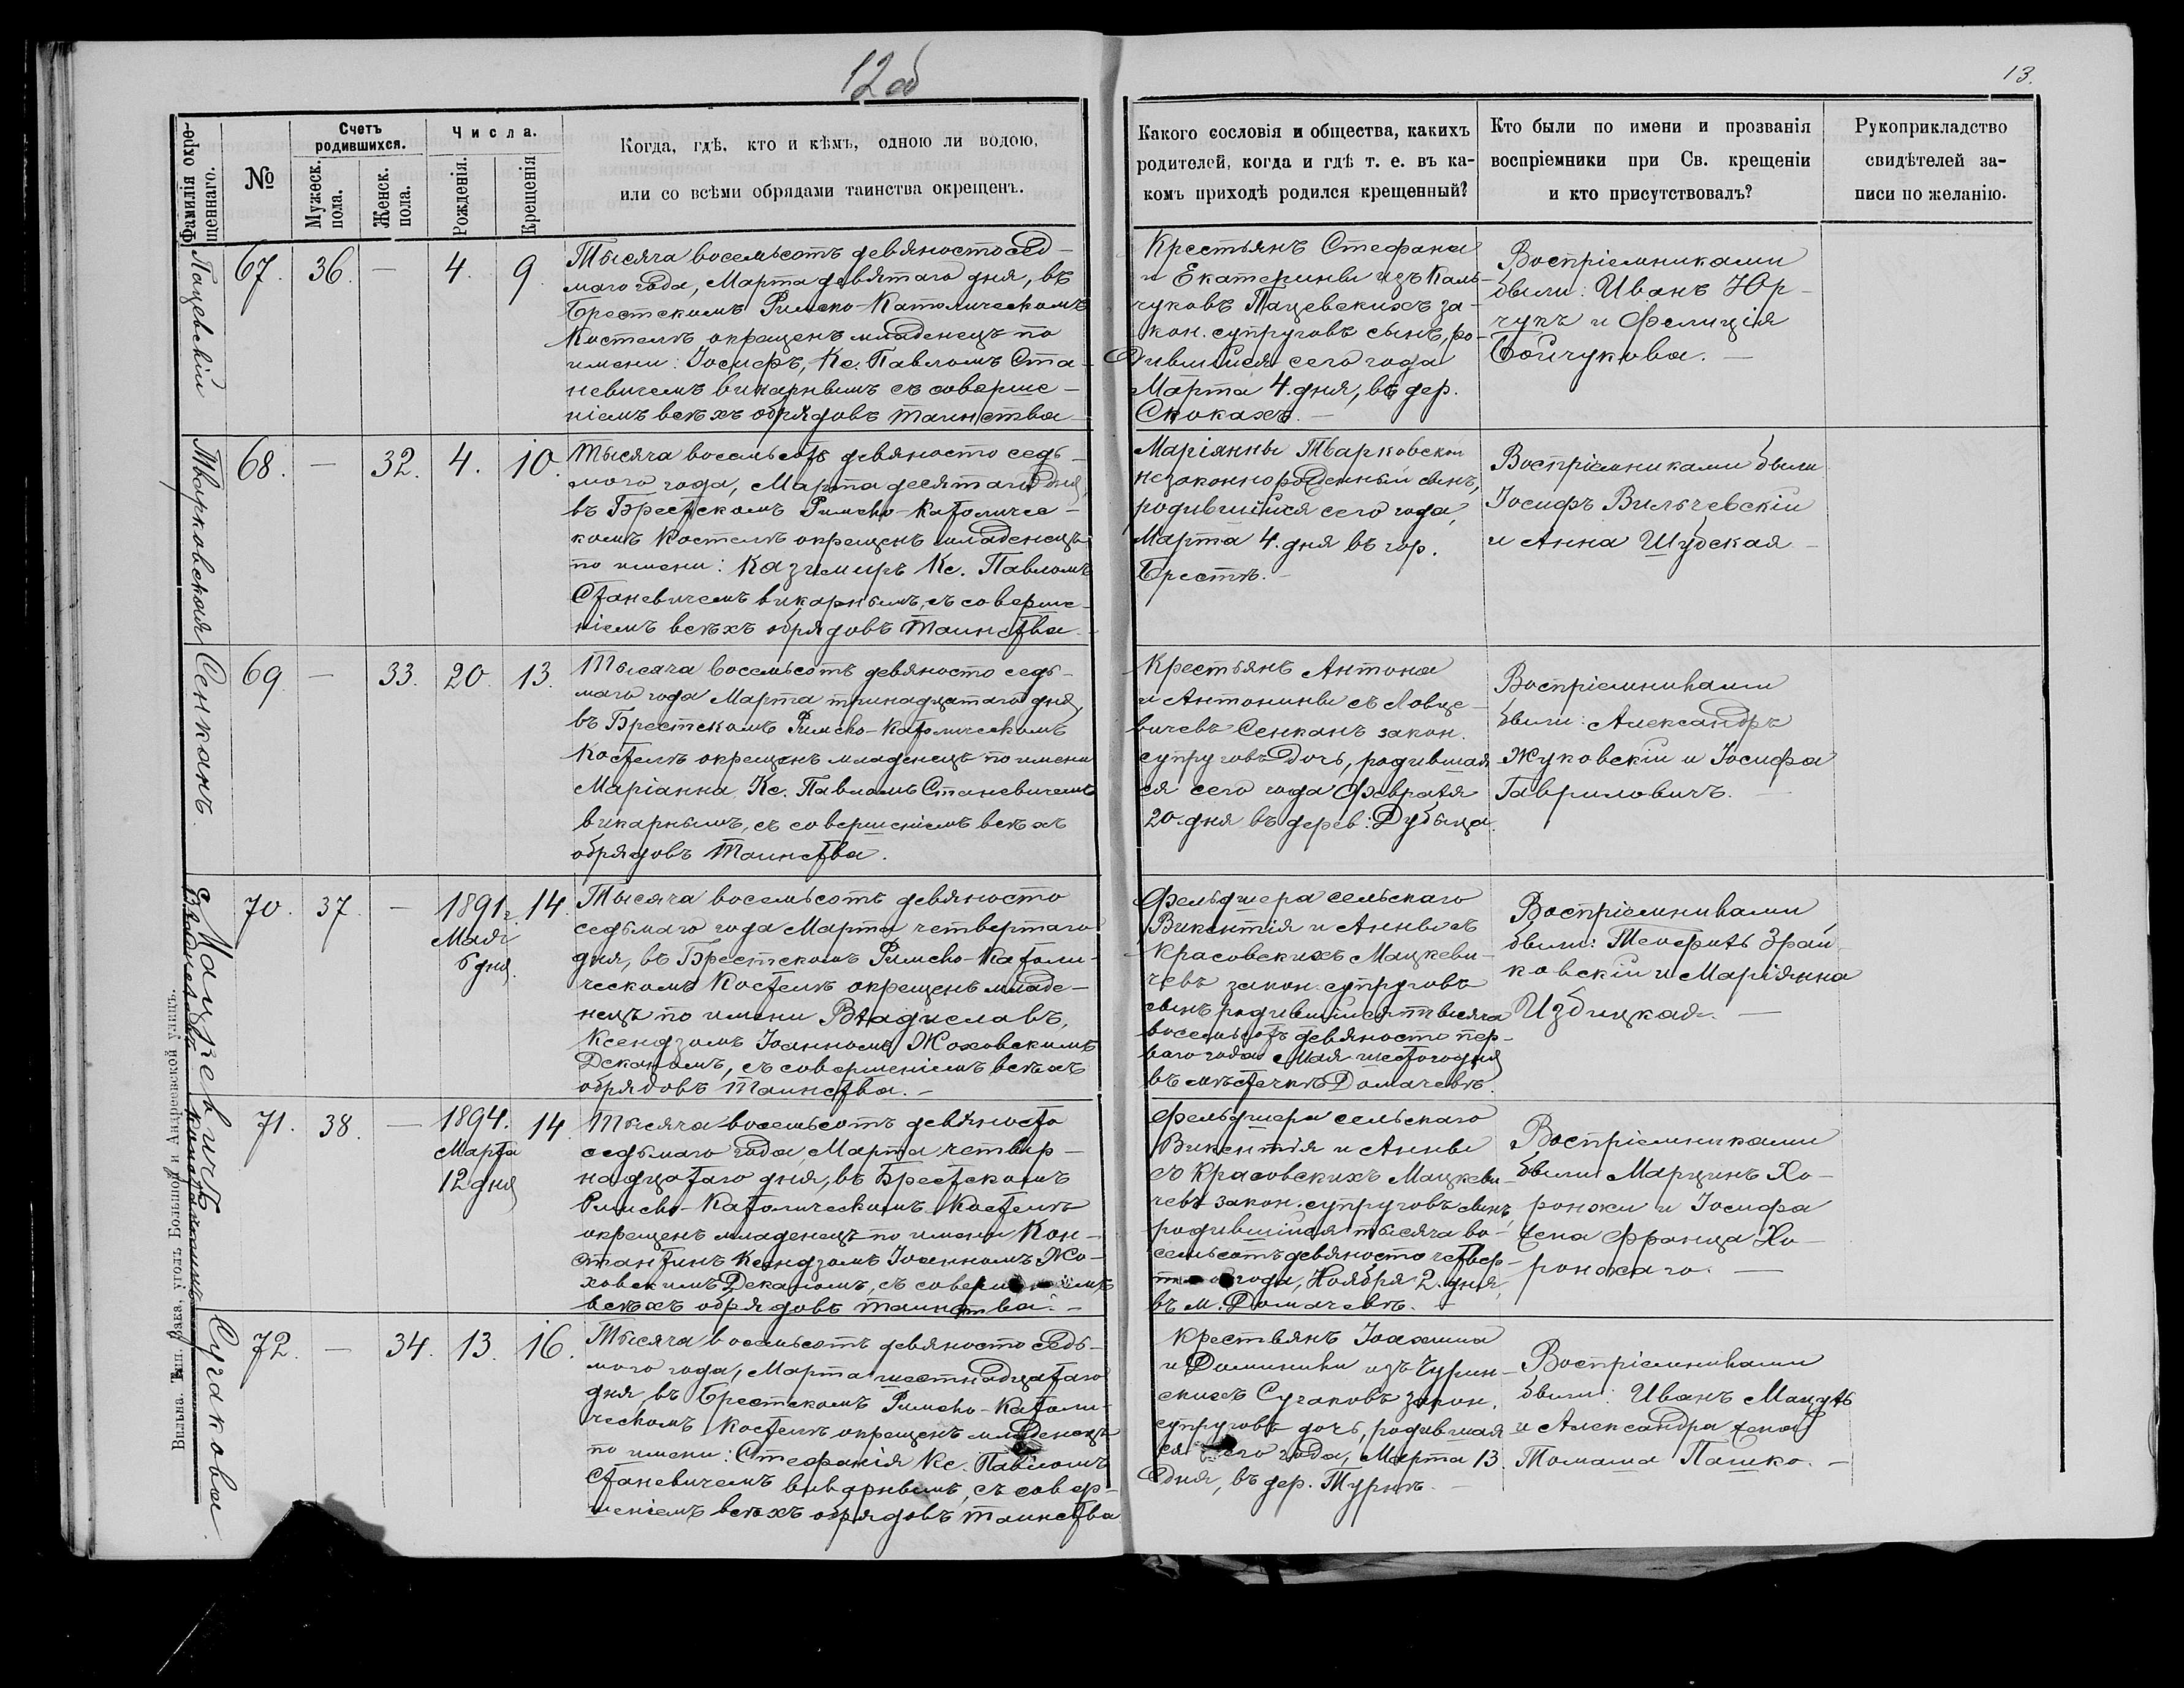 12 об
13.
Фамилія окре-
щеннаго.
№
Счетъ
родившихся.
Мужеск.
пола.
Женск.
пола.
Числа.
Рожденія.
Крещенія
Когда, гдѣ, кто и кѣмъ, одною ли водою,
или со всѣми обрядами таинства окрещенъ.
Какого сословія и общества, какихъ
родителей, когда и гдѣ т. е. въ ка-
комъ приходѣ родился крещенный?
Кто были по имени и прозванія
воспріемники при Св. крещеніи
и кто присутствовалъ?
Рукоприкладство
свидѣтелей за-
писи по желанію.
Пацевскій
67. 36. — 4. 9.
Тысяча восемьсотъ девяносто сед-
маго года, Марта девятаго дня, въ
Брестскомъ Римско-Католическомъ
Костелѣ окрещенъ младенецъ по
имени: Іосифъ, Кс. Павломъ Ста-
невичемъ викарнымъ съ соверше-
ніемъ всѣхъ обрядовъ таинства
Крестьянъ Стефана
и Екатерины изъ Каль-
чуковъ Пацевскихъ за-
кон. супруговъ сынъ, ро-
дившійся сего года
Марта 4. дня, въ дер.
Скокахъ. —
Воспріемниками
были: Иванъ Юр-
чукъ и Фелиція
Бойчукова. —
Тварковская
68. — 32. 4. 10.
Тысяча восемьсотъ девяносто седь-
мого года, Марта десятаго дня,
въ Брестскомъ Римско-Католичес-
комъ Костелѣ окрещенъ младенецъ
по имени: Казимиръ Кс. Павломъ
Станевичемъ викарнымъ, съ соверше-
ніемъ всѣхъ обрядовъ таинства. -
Маріянны Тварковской
незаконнорожденный сынъ,
родившійся сего года,
Марта 4. дня въ гор.
Брестѣ. -
Воспріемниками были
Іосифъ Вильчевскій
и Анна Шудская -
Сенканъ
69. — 33. 20. 13.
Тысяча восемьсотъ девяносто седь-
маго года Марта тринадцатаго дня,
въ Брестскомъ Римско-Католическомъ
Костелѣ окрещенъ младенецъ по имени
Маріанна Кс. Павломъ Станевичемъ
викарнымъ, съ совершеніемъ всѣхъ
обрядовъ таинства.
Крестьянъ Антона
и Антонины съ Ловце-
вичевъ Сенканъ закон.
супруговъ дочь, родившая-
ся сего года Февраля
20. дня въ дерев: Дубица.
Воспріемниками
были: Александръ
Жуковскій и Іосифа
Гавриловичъ. —
Мацкевичъ
70. 37. — 1891 г. 14.
Мая
6 дня.
Тысяча восемьсотъ девяносто
седьмаго года Марта четвертаго
дня, въ Брестскомъ Римско-Католи-
ческомъ Костелѣ окрещенъ младе-
нецъ по имени Владиславъ,
Ксендзомъ Іоанномъ Жоховскимъ
Деканомъ, съ совершеніемъ всѣхъ
обрядовъ таинства. -
Фельдшера сельскаго
Викентія и Анны съ
Красовскихъ Мацкеви-
чевъ закон. супруговъ
сынъ родившійся тысяча
восемьсотъ девяносто пер-
ваго года Мая шестого дня
въ мѣстечкѣ Домачевѣ.
Воспріемниками
были: Теофиль Зрай
ковскій и Маріянна
Избицкая. —
71. 38. — 1894. 14.
Марта
12 дня
Тысяча восемьсотъ девяносто
седьмаго года, Марта четыр-
надцатаго дня, въ Брестскомъ
Римско-Католическомъ Костелѣ
окрещенъ младенецъ по имени Кон-
стантинъ Ксендзомъ Іоанномъ Жо-
ховскимъ Деканомъ, съ совершеніемъ
всѣхъ обрядовъ таинства. -
Фельдшера сельскаго
Викентія и Анны
съ Красовскихъ Мацкеви-
чевъ закон. супруговъ сынъ,
родившійся тысяча во-
семьсотъ девяносто четвер-
года, Ноября 2. дня,
въ м. Домачевѣ. -
Воспріемниками
были Марцинъ Хо-
ронжи и Іосифа
жена Франца Хо-
ронжаго. —
Сугакова
72. — 34. 13. 16.
Тысяча восемьсотъ девяносто седь-
мого года, Марта шестнадцатаго
дня, въ Брестскомъ Римско-Католи-
ческомъ Костелѣ окрещенъ младенецъ
по имени: Стефанія Кс. Павломъ
Станевичемъ викарнымъ, съ совер-
шеніемъ всѣхъ обрядовъ таинства
Крестьянъ Іоахима
и Доминики изъ Чурин-
скихъ Сугаковъ закон.
супруговъ дочь, родившая
ся сего года, Марта 13.
дня, въ дер. Турнѣ. -
Воспріемниками
были: Иванъ Мацуть
и Александра жена
Томаша Пашко. -
Вильна. Тип. Зака, уголъ Большой и Андреевской улицъ.